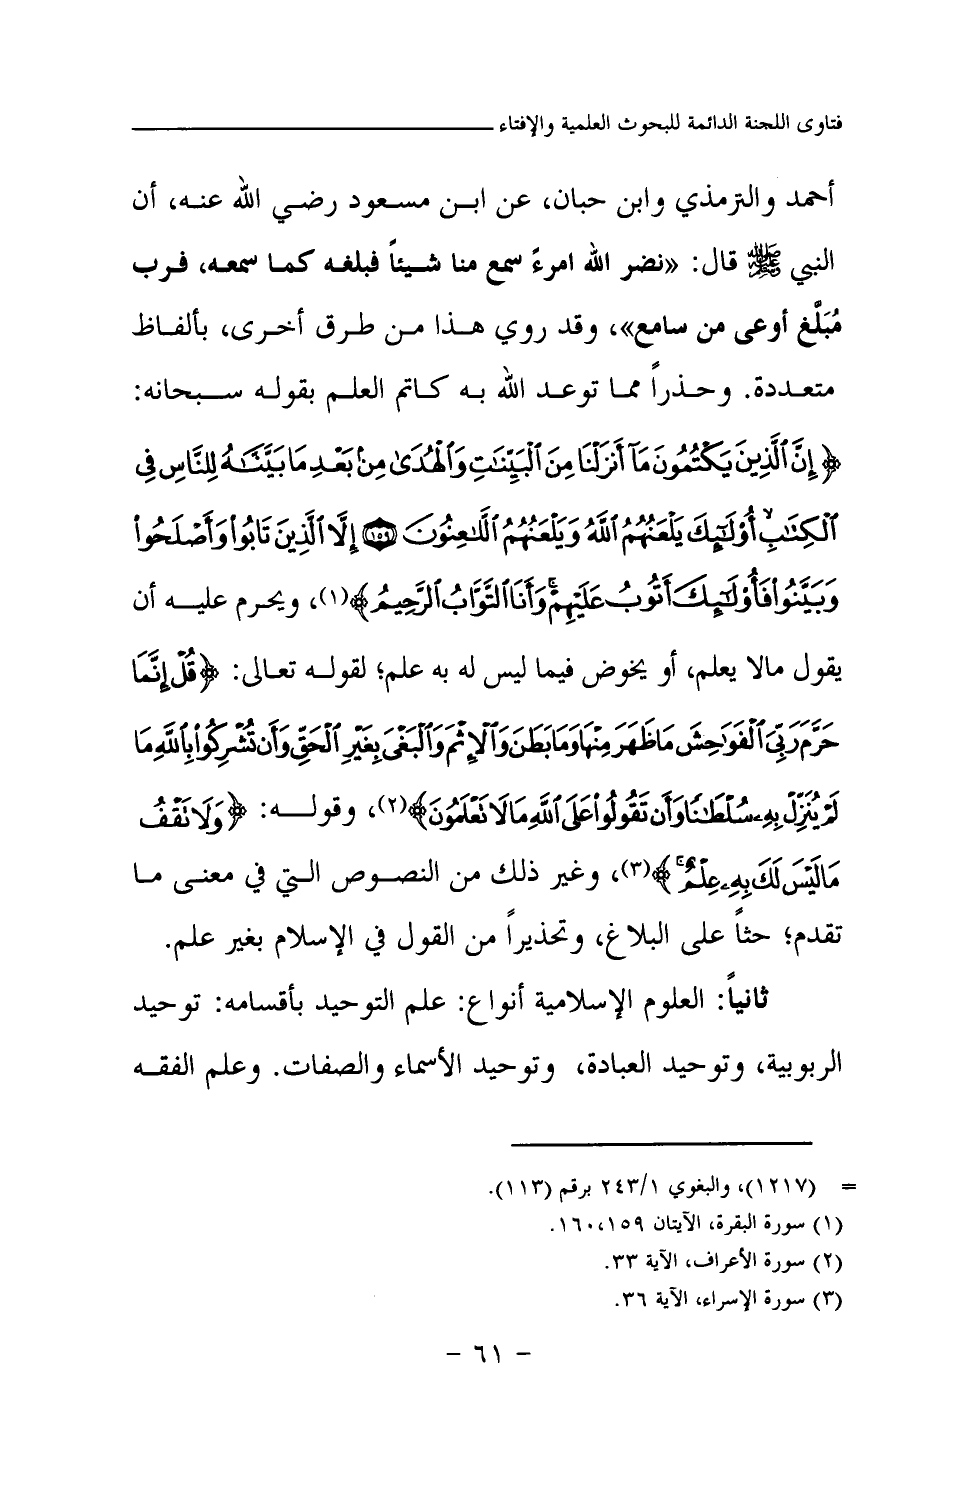 فتاوى اللجنة الدائمة للبحوث العلمية والإفتاء
أحمد والترمذي وابن حبان، عن ابن مسعود رضي الله عنه، أن
النبي ﷺ قال: «نضر الله امرءً سمع منا شيئاً فبلغه كما سمعه، فرب
مُبَلَّغ أوعى من سامع»، وقد روي هذا من طرق أخرى، بألفاظ
متعددة. وحذراً مما توعد الله به كاتم العلم بقوله سبحانه:
﴿إِنَّ ٱلَّذِينَ يَكْتُمُونَ مَآ أَنزَلْنَا مِنَ ٱلْبَيِّنَٰتِ وَٱلْهُدَىٰ مِنۢ بَعْدِ مَا بَيَّنَّٰهُ لِلنَّاسِ فِي
ٱلْكِتَٰبِ ۙ أُوْلَٰٓئِكَ يَلْعَنُهُمُ ٱللَّهُ وَيَلْعَنُهُمُ ٱللَّٰعِنُونَ ١٥٩ إِلَّا ٱلَّذِينَ تَابُوا۟ وَأَصْلَحُوا۟
وَبَيَّنُوا۟ فَأُوْلَٰٓئِكَ أَتُوبُ عَلَيْهِمْ ۚ وَأَنَا ٱلتَّوَّابُ ٱلرَّحِيمُ﴾(١)، ويحرم عليه أن
يقول مالا يعلم، أو يخوض فيما ليس له به علم؛ لقوله تعالى: ﴿قُلْ إِنَّمَا
حَرَّمَ رَبِّيَ ٱلْفَوَٰحِشَ مَا ظَهَرَ مِنْهَا وَمَا بَطَنَ وَٱلْإِثْمَ وَٱلْبَغْيَ بِغَيْرِ ٱلْحَقِّ وَأَن تُشْرِكُوا۟ بِٱللَّهِ مَا
لَمْ يُنَزِّلْ بِهِۦ سُلْطَٰنًا وَأَن تَقُولُوا۟ عَلَى ٱللَّهِ مَا لَا تَعْلَمُونَ﴾(٢)، وقوله: ﴿وَلَا تَقْفُ
مَا لَيْسَ لَكَ بِهِۦ عِلْمٌ ۚ﴾(٣)، وغير ذلك من النصوص التي في معنى ما
تقدم؛ حثاً على البلاغ، وتحذيراً من القول في الإسلام بغير علم.
ثانياً: العلوم الإسلامية أنواع: علم التوحيد بأقسامه: توحيد
الربوبية، وتوحيد العبادة، وتوحيد الأسماء والصفات. وعلم الفقه
= (١٢١٧)، والبغوي ٢٤٣/١ برقم (١١٣).
(١) سورة البقرة، الآيتان ١٥٩،١٦٠.
(٢) سورة الأعراف، الآية ٣٣.
(٣) سورة الإسراء، الآية ٣٦.
- ٦١ -